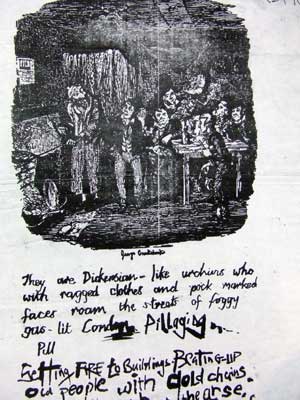 George Cruikshank
They are Dickensian - like urchins who
with ragged clothes and pock marked
faces roam the streets of foggy
gas-lit London Pillaging...
Pill
Setting FIRE to Buildings BEATING-UP
old people with Gold chains.